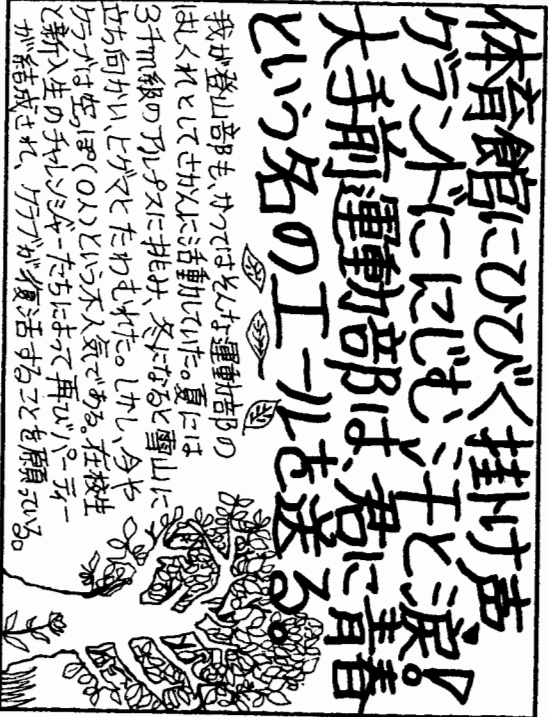 体育館にひびく掛け声
グランドににじむ、汗と涙!
大手前運動部は、君に青春
という名のエールを送る。
我が登山部も、かつてはそんな運動部の
はしくれとしてさかんに活動していた。夏には
3千m級のアルプスに挑み、冬になると雪山に
立ち向かい、ヒグマとたわむれた。しかし、今や
クラブは空っぽ(0人)という不人気である。在校生
と新入生のチャレンジャーたちによって再びパーティー
が結成され、クラブが復活することを願っている。